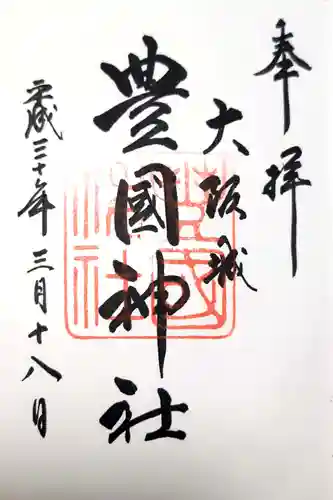 奉拝
大阪城
豊國神社
平成三十年三月十八日